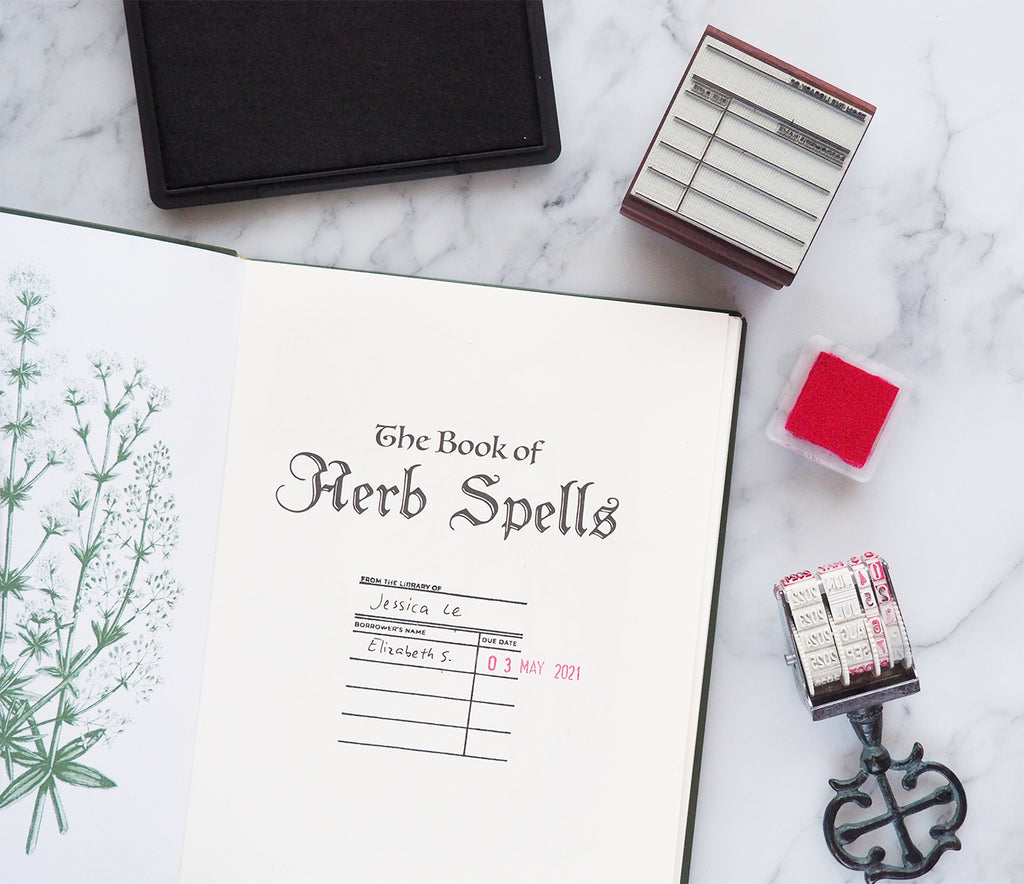 The Book of
Herb Spells
FROM THE LIBRARY OF
Jessica Le
BORROWER'S NAME
DUE DATE
Elizabeth S.
03 MAY 2021